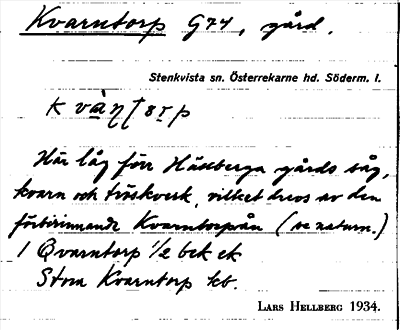 Kvarntorp G74, gård.
Stenkvista sn. Österrekarne hd. Söderm. l.
Här låg förr Hässeberga gårds såg,
kvarn och tröskverk, vilket drevs av den
förbirinnande Kvarntorpsån (se naturn.)
1 Qvarntorp 1/2 bek ek
Stora Kvarntorp kb.
LARS HELLBERG 1934.